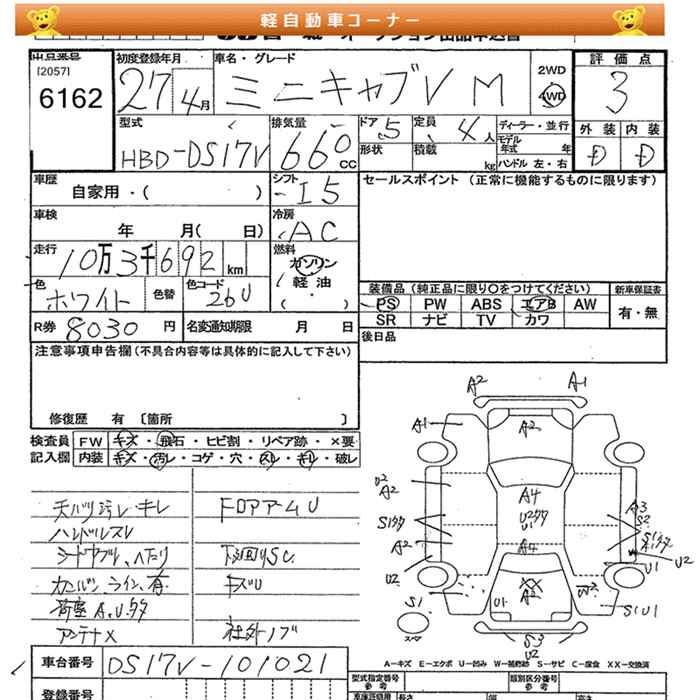 軽自動車コーナー
出品番号
[2057]
6162
初度登録年月
27年4月
車名・グレード
ミニキャブV M
2WD
4WD
評価点
3
型式
HBD-DS17V
排気量
660cc
ドア 5
定員 4人
形状
積載 kg
ディーラー・並行
モデル年式 年
ハンドル 左・右
外装 内装
D D
車歴
自家用・( )
シフト
I5
セールスポイント (正常に機能するものに限ります)
車検
年 月( 日)
冷房
AC
走行
10万3千692km
燃料
ガソリン
・
軽油
( ・ )
色
ホワイト
色替
色コード
26U
装備品 (純正品に限り○をつけてください)
新車保証書
PS PW ABS エアB AW
有・無
SR ナビ TV カワ
R券 8030 円
名変通知期限 月 日
後日品
注意事項申告欄 (不具合内容等は具体的に記入して下さい)
修復歴 有 〔箇所 〕
検査員
記入欄
FW キズ・飛石・ヒビ割・リペア跡・×要
内装 キズ・汚レ・コゲ・穴・スレ・キレ・破レ
天バリ汚レ・キレ
ハンドルスレ
シートヤブレ、ヘタリ
カンバン、ライン、有
荷室A、U、タタ
アンテナX
FロアアームU
下廻りSC
キズU
社外ノブ
A2 A1
A1 A2
U2
A2
A4
S1タタ
U2タタ
U1
A3
S2
A2
A4
U2
U1
U2
S1
スペア
U1
XX
A2
W2
S1U1
S3
U2
A－キズ E－エクボ U－凹み W－補修跡 S－サビ C－腐食 XX－交換済
車台番号 DS17V-101021
型式指定番号
参考
類別区分番号
参考
登録番号
車検証用
長さ
幅
高さ